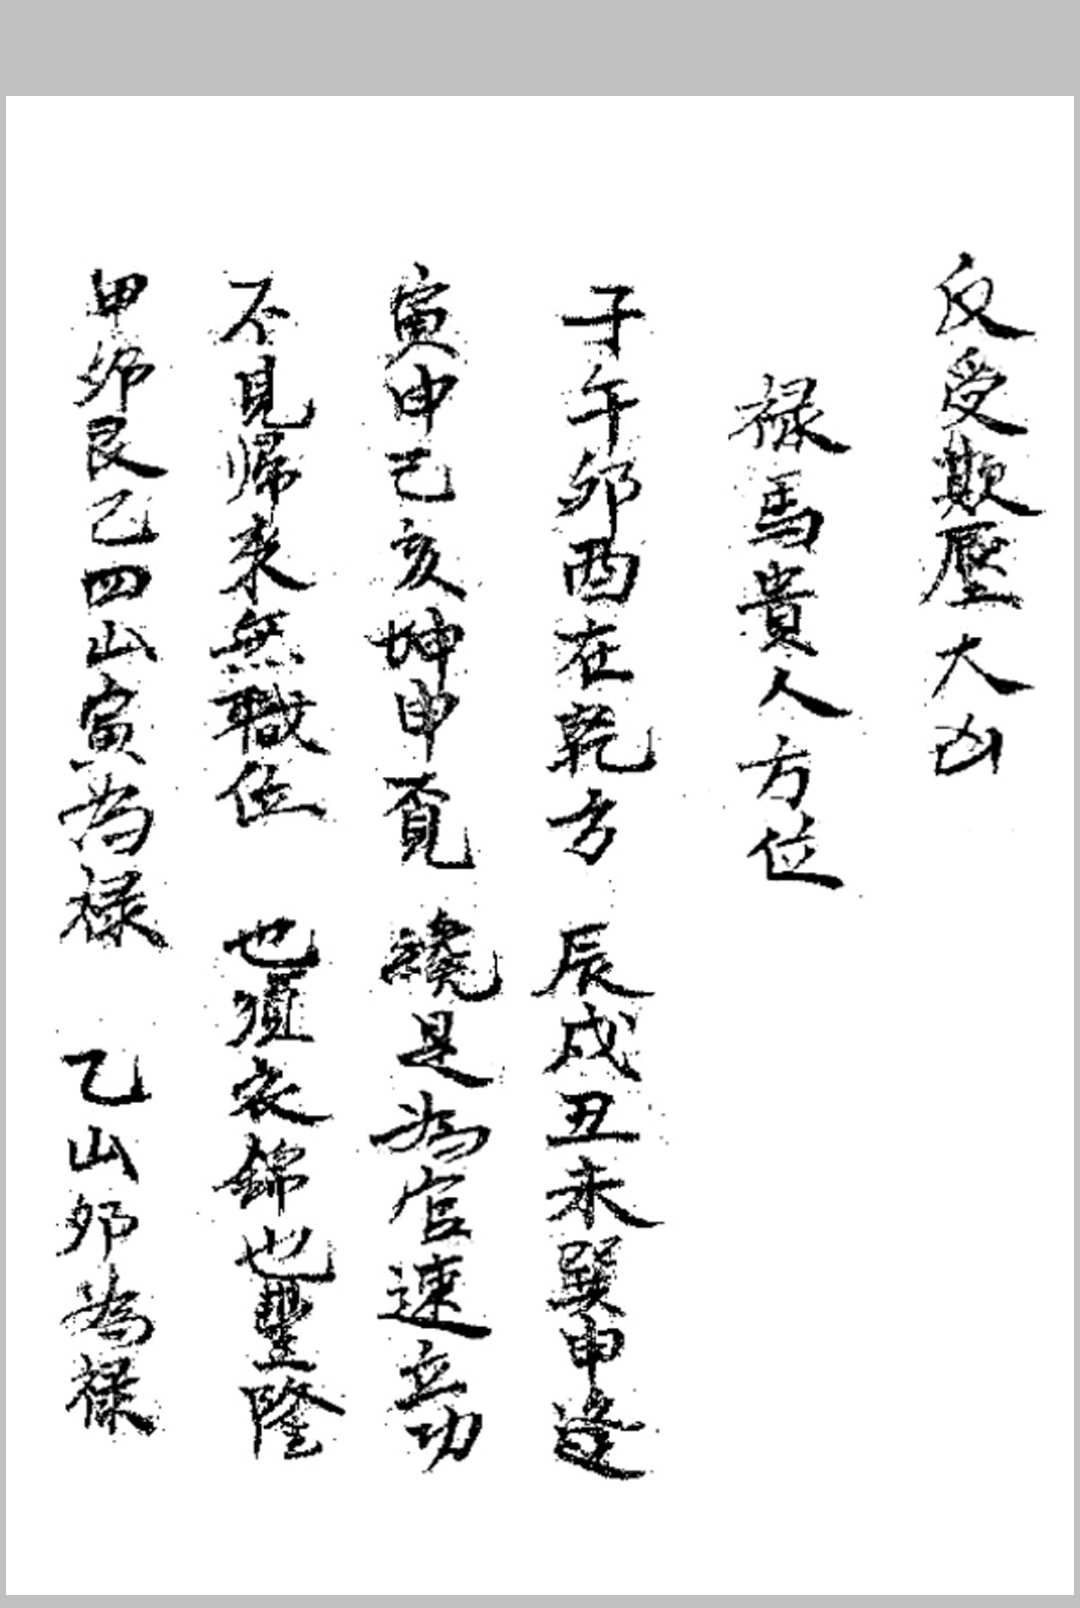 反受欺壓大凶
禄馬貴人方位
子午卯酉在乾方 辰戌丑未巽中逢
寅申己亥坤申覓 纔是為官速立功
不見歸来無職位 也須衣錦也豐隆
甲卯艮乙四山寅為禄 乙山卯為禄